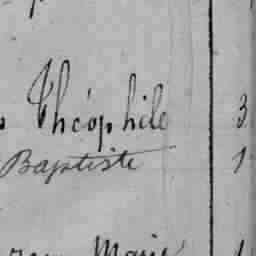 Théophile 3
Baptiste 1
Marie 1